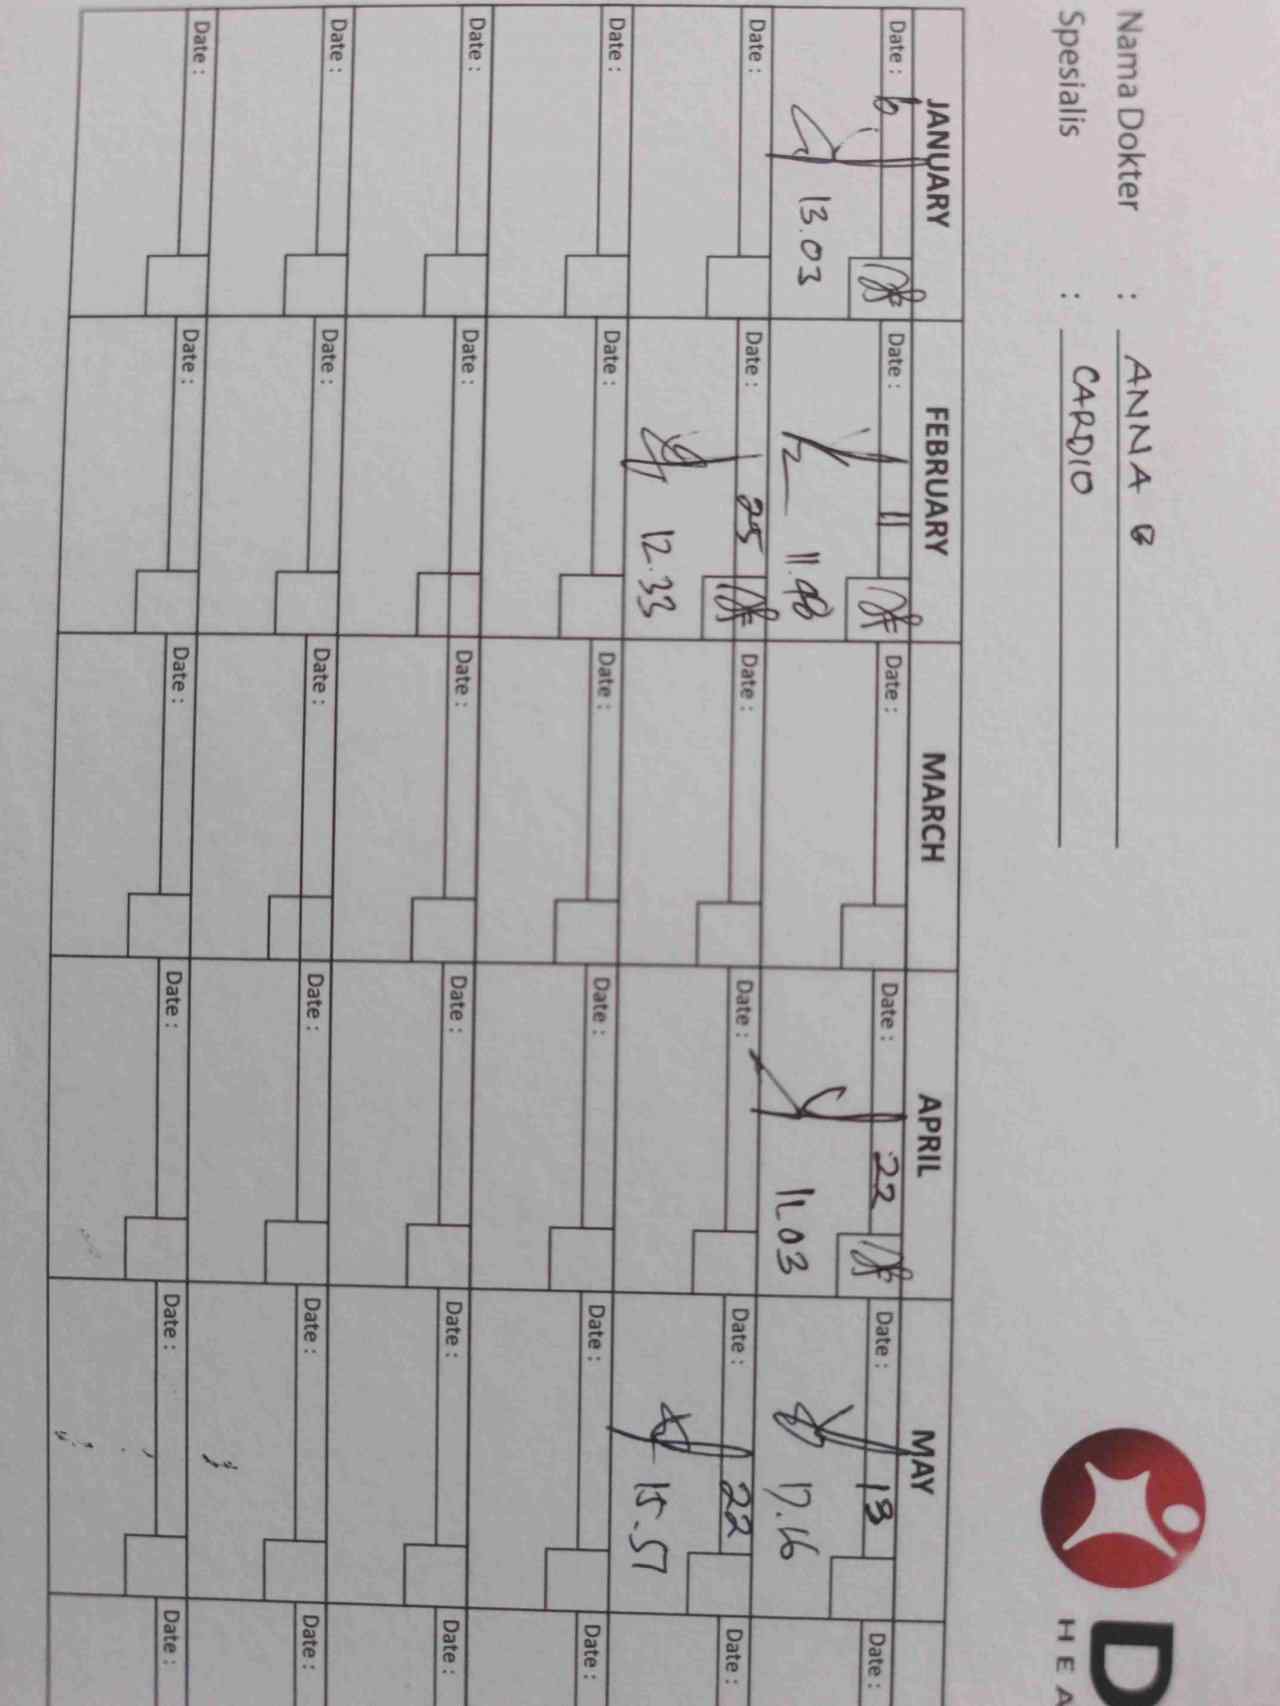 D
HEA
Nama Dokter : ANNA
Spesialis : CARDIO
JANUARY FEBRUARY MARCH APRIL MAY
Date : 6 Date : 11 Date : Date : 22 Date : 13 Date :
13.03 11.48 11.03 17.16
Date : Date : 25 Date : Date : Date : 22 Date :
12.33 15.57
Date : Date : Date : Date : Date : Date :
Date : Date : Date : Date : Date : Date :
Date : Date : Date : Date : Date : Date :
Date : Date : Date : Date : Date : Date :